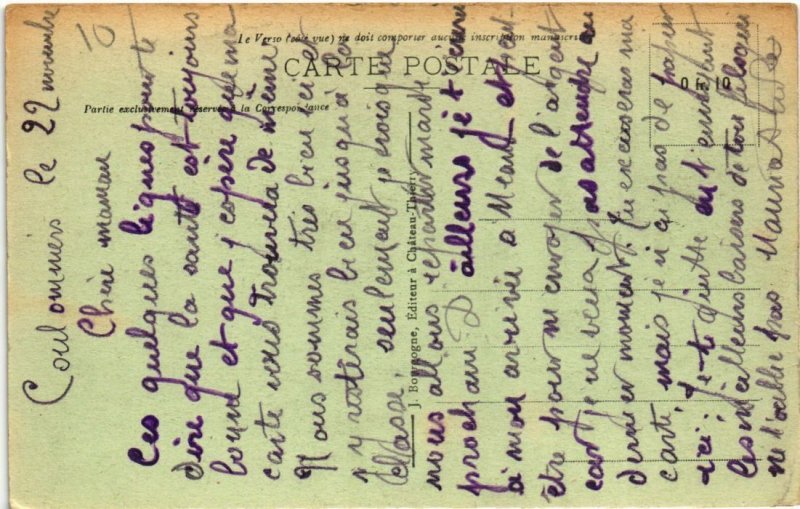 Le Verso (côté vue) ne doit comporter aucune inscription manuscrite
CARTE POSTALE
Partie exclusivement réservée à la Correspondance
J. Bourgogne, Éditeur à Château-Thierry
0 fr 10
10
Coulommiers le 22 novembre
Chère maman
Ces quelques lignes pour te
dire que la santé est toujours
bonne et que j'espère que ma
carte vous trouvera de même
Nous sommes très bien ici et
j'y resterais bien jusqu'à la
classe. seulement je crois que
nous allons repartir mardi
prochain. D'ailleurs je t'écrirai
à mon arrivée à Meaux et peut
être pour m'envoyer de l'argent
car je ne veux pas attendre au
dernier moment. Tu excuseras ma
carte, mais je n'ai pas de papier
ici. Je te quitte en t'envoyant
les meilleurs baisers de ton fils qui
ne t'oublie pas Maurice